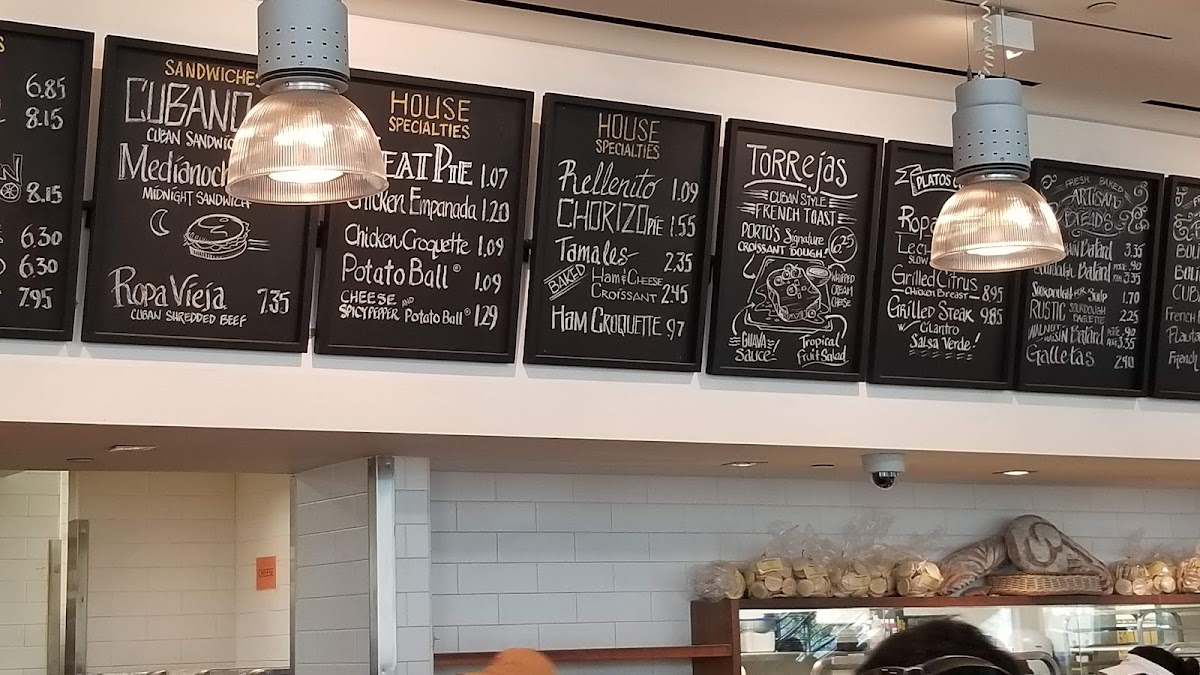 6.85
8.15
8.15
6.30
6.30
7.95
SANDWICHES
CUBANO
CUBAN SANDWICH
Medianoche
MIDNIGHT SANDWICH
Ropa Vieja 7.35
CUBAN SHREDDED BEEF
HOUSE
SPECIALTIES
EAT PIE 1.07
Chicken Empanada 1.20
Chicken Croquette 1.09
Potato Ball® 1.09
CHEESE AND
SPICY PEPPER Potato Ball® 1.29
HOUSE
SPECIALTIES
Rellenito 1.09
CHORIZO PIE 1.55
Tamales 2.35
BAKED Ham & CHEESE
CROISSANT 2.45
HAM CROQUETTE .97
TORREJAS
CUBAN STYLE
FRENCH TOAST
PORTO'S Signature
CROISSANT DOUGH! 6.25
WHIPPED
CREAM
CHEESE
GUAVA
SAUCE
Tropical
Fruit Salad
PLATOS
Ropa
Lec
SLOW
Grilled Citrus
Chicken Breast 8.95
Grilled Steak 9.85
W/ Cilantro
Salsa Verde!
FRESH BAKED
ARTISAN
BREADS
Batard 3.35
Batard .90 3.35
Sourdough Soup 1.70
RUSTIC SOURDOUGH
BAGUETTE 2.25
WALNUT Batard .90
3.35
Galletas 2.40
BOU
CUB
French
Plauta
French
CHEESE